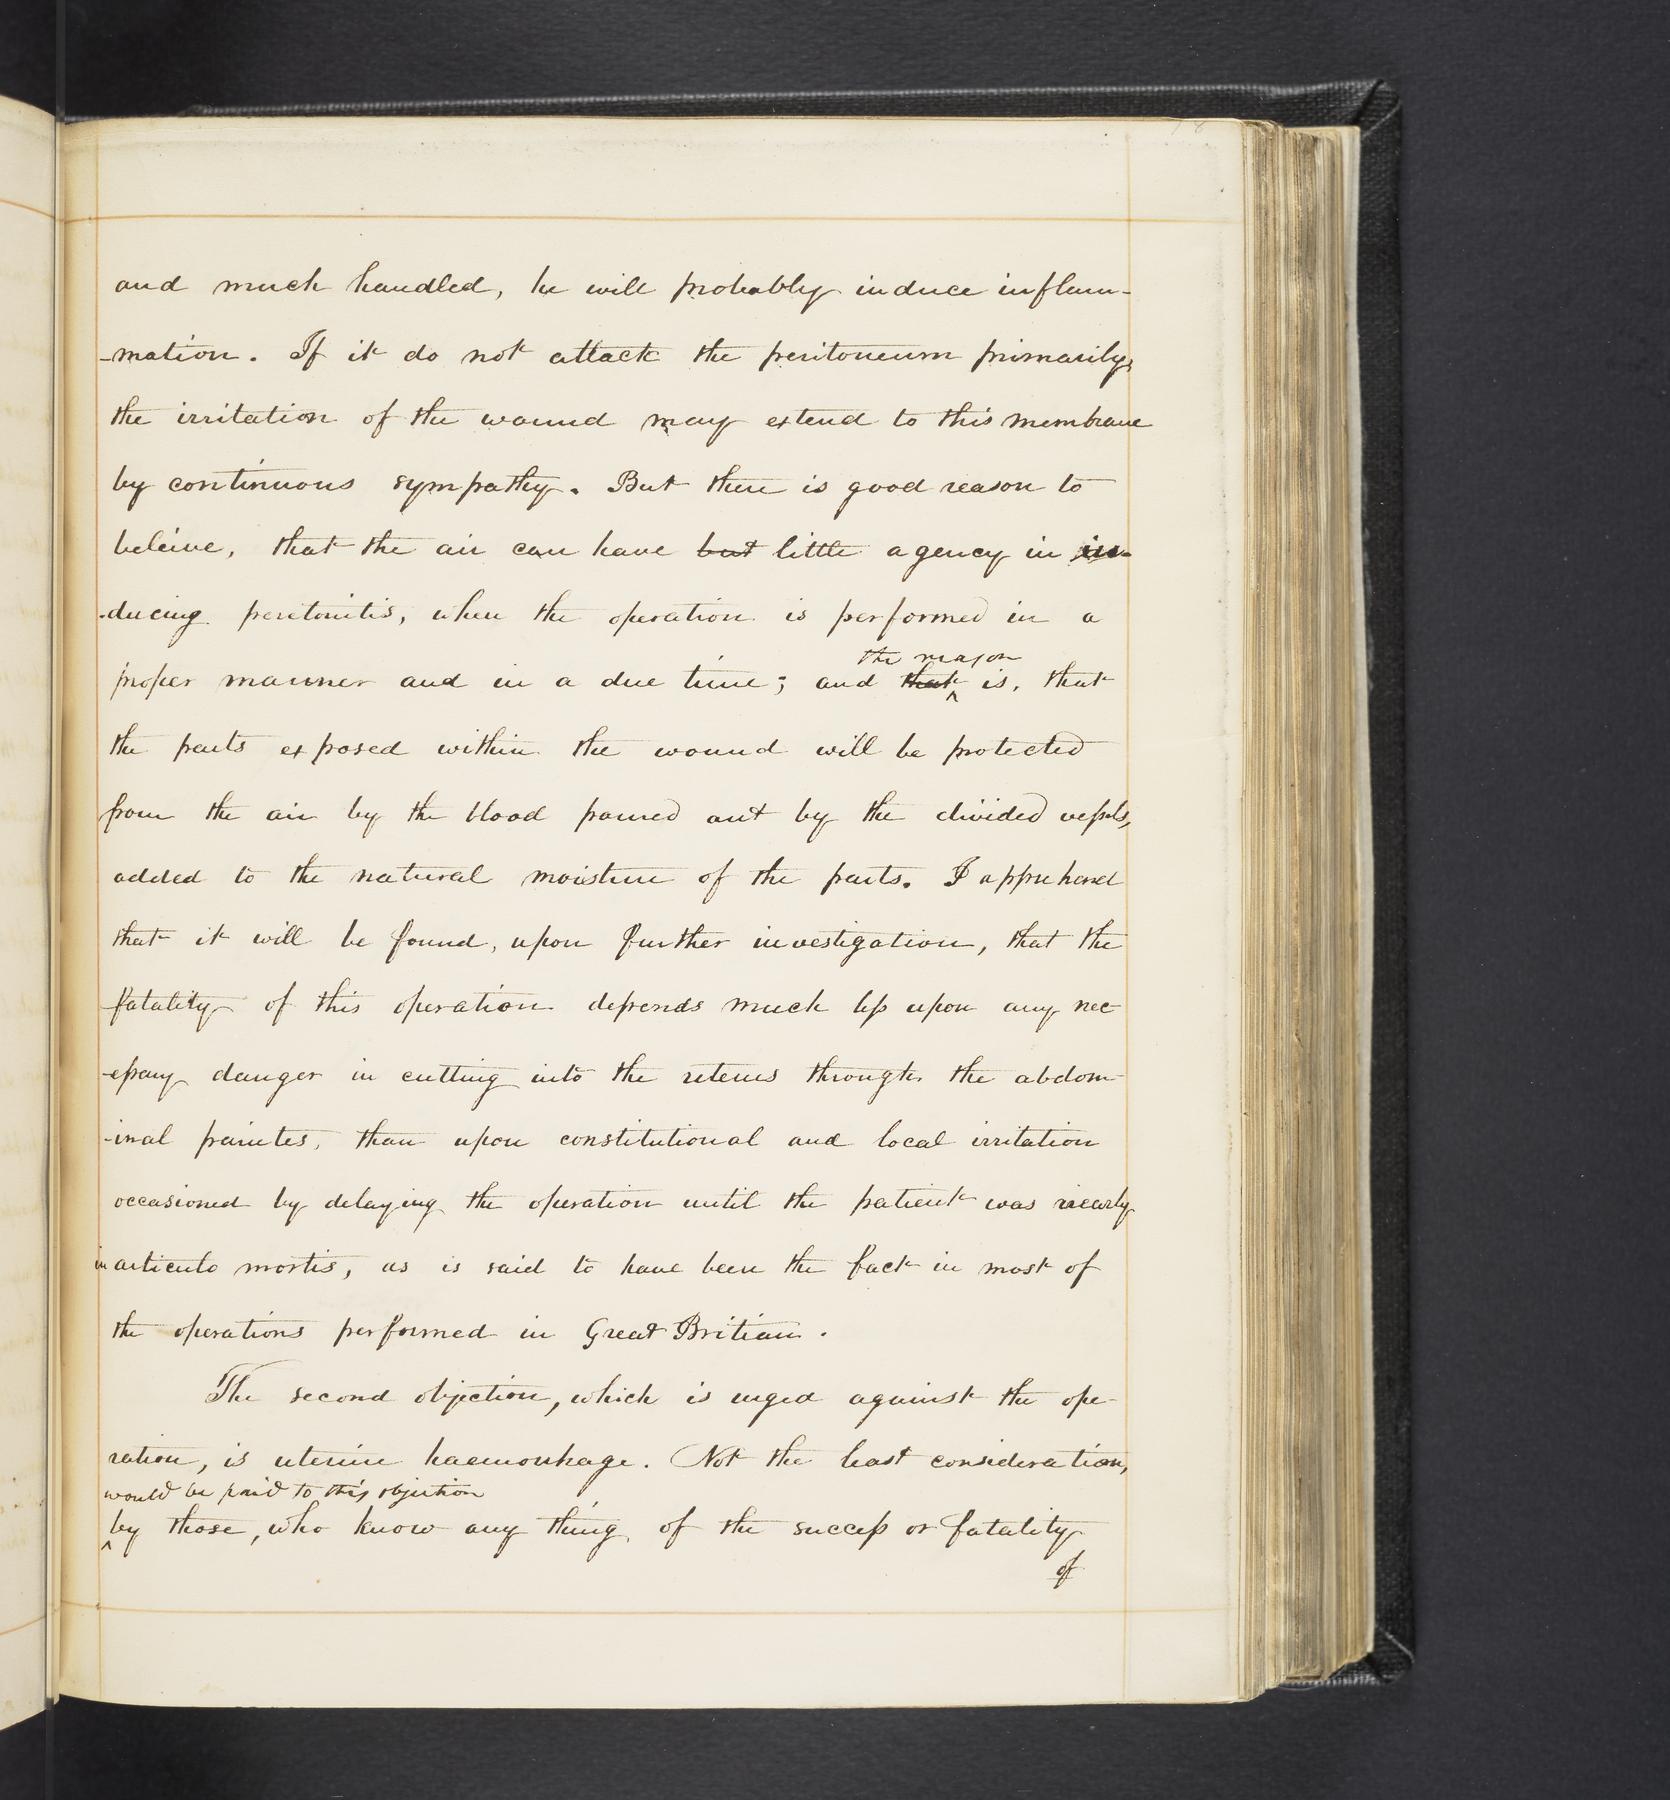 and much handled, he will probably induce inflam-
-mation. If it do not attack the peritoneum primarily,
the irritation of the wound may extend to this membrane
by continuous sympathy. But there is good reason to
beleive, that the air can have but little agency in in-
-ducing peretonitis, when the operation is performed in a
the reason
proper manner and in a due time; and that ^ is, that
the parts exposed within the wound will be protected
from the air by the blood poured out by the divided vessels,
added to the natural moisture of the parts. I apprehend
that it will be found, upon further investigation, that the
fatality of this operation depends much less upon any nec-
-essary danger in cutting into the uterus through the abdom-
-inal parietes, than upon constitutional and local irritation
occasioned by delaying the operation until the patient was nearly
in articulo mortis, as is said to have been the fact in most of
the operations performed in Great Britian.
The second objection, which is urged against the ope-
ration, is uterine haemorrhage. Not the least consideration,
would be paid to this objection
^ by those, who know any thing, of the success or fatality
of